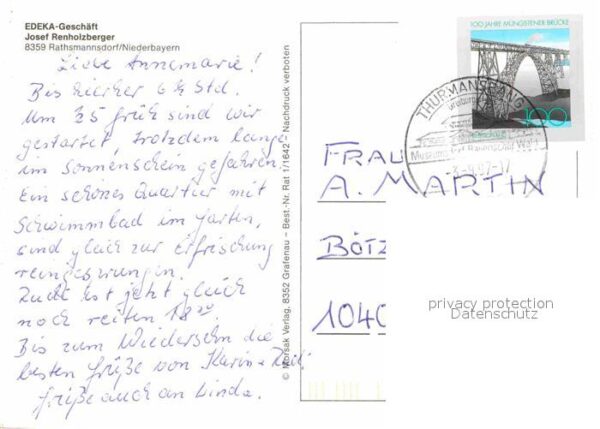 EDEKA-Geschäft
Josef Renholzberger
8359 Rathsmannsdorf/Niederbayern
Liebe Annemarie!
Bis hierher 6 ½ Std.
Um ½5 früh sind wir
gestartet, trotzdem lange
im Sonnenschein gefahren.
Ein schönes Quartier mit
Schwimmbad im Garten,
sind gleich zur Erfrischung
reingesprungen.
ist jetzt gleich
noch reiten 18
Bis zum Wiedersehn die
besten Grüße von Karin +
Grüße auch an Linda.
© Morsak Verlag, 8352 Grafenau – Best.-Nr. Rat 1/1642 · Nachdruck verboten
100 JAHRE MÜNGSTENER BRÜCKE
100
THURMANSBANG
Museumsdorf Bayerischer Wald
FRAU
A. MARTIN
BÖTZ
1040
privacy protection
Datenschutz